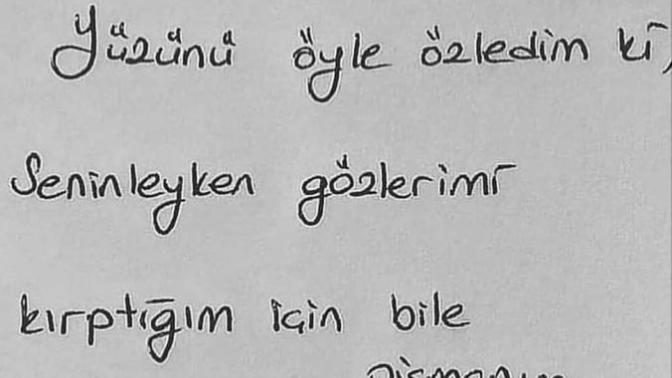 Yüzünü öyle özledim ki,
Seninleyken gözlerimi
kırptığım için bile
pişmanım